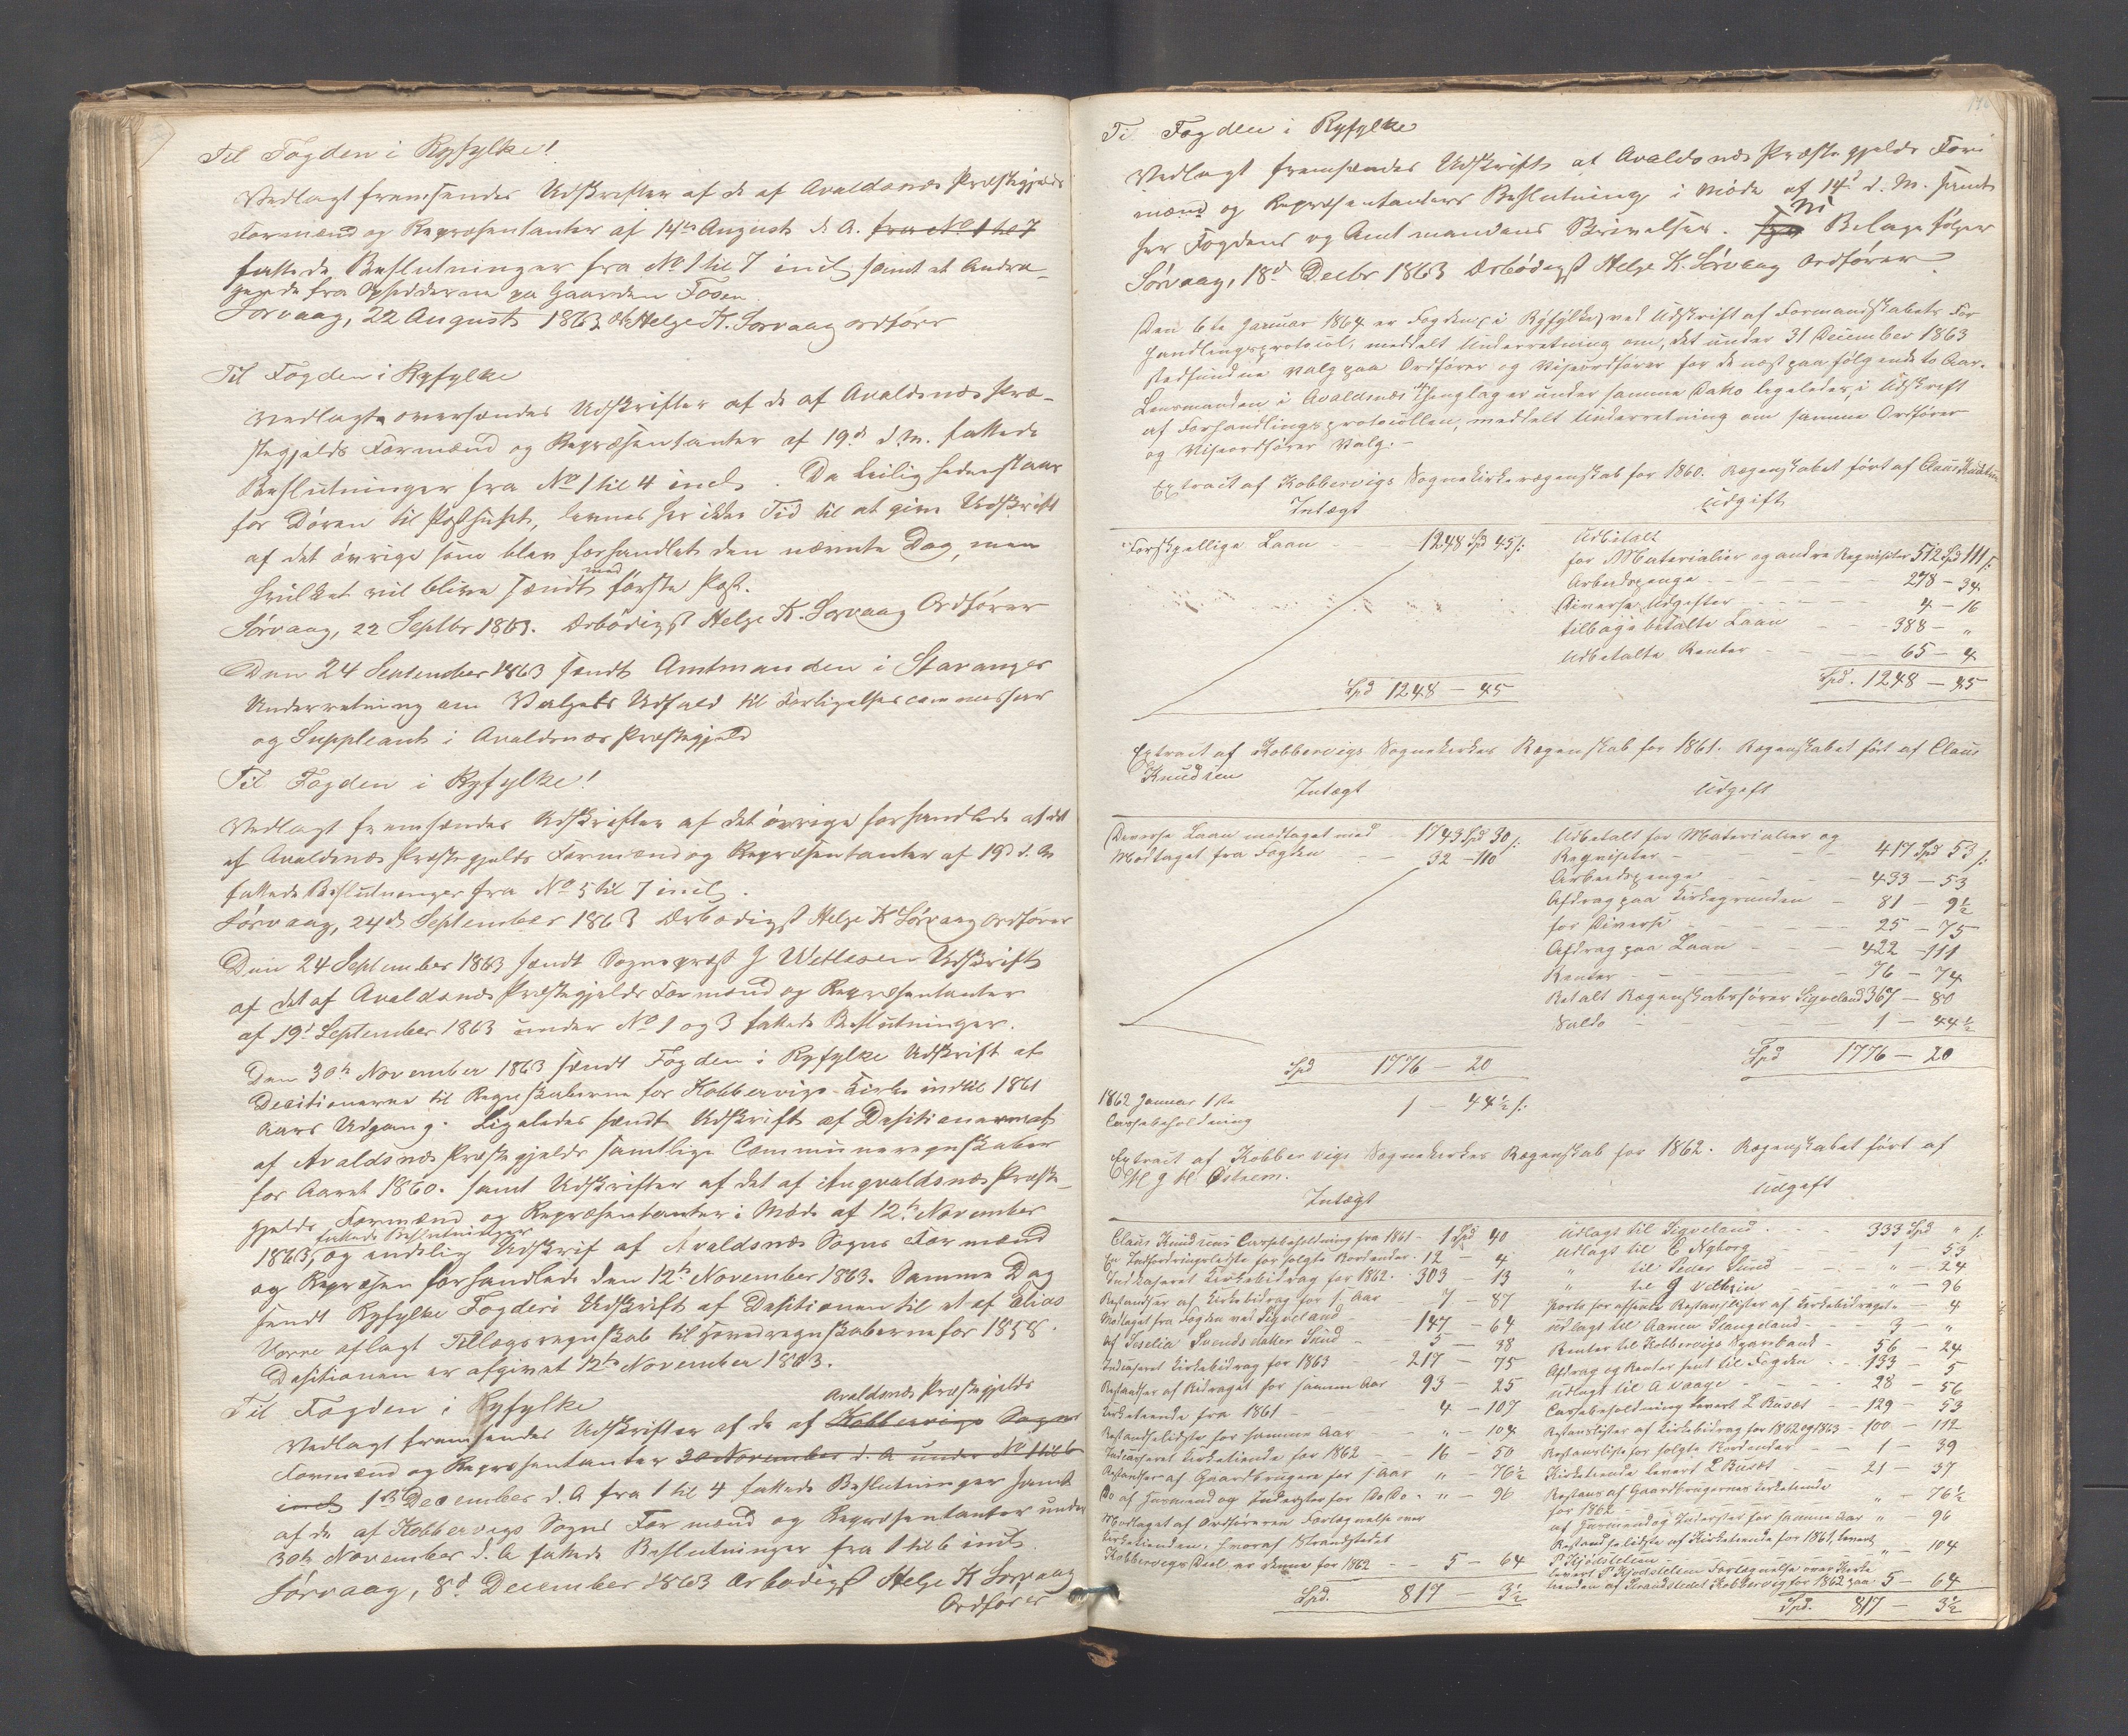 Til Fogden i Ryfylke!
Vedlagt fremsendes Udskrifter af de af Avaldsnæs Præstegjelds
Formænd og Repræsentanter af 14de August d. A. fra No 1 til 7
fattede Beslutninger fra No 1 til 7 incl samt et Andra-
gende fra Opsidderne paa Gaarden Fosen.
Sørvaag, 22 August 1863 Helge K. Sørvaag ordfører
Til Fogden i Ryfylke
Vedlagte oversendes Udskrifter af de af Avaldsnæs Præ-
stegjelds Formænd og Repræsentanter af 19d d. M. fattede
Beslutninger fra No 1 til 4 incl. Da Leiligheden staar
for Døren til Posthuset, levnes her ikke Tid til at give Udskrift
af det øvrige som blev forhandlet den nævnte Dag, men
hvilket vil blive sendt med første Post.
Sørvaag, 22 Septbr 1863. Ærbødigst Helge K. Sørvaag Ordfører
Den 24 September 1863 sendt Amtmanden i Stavanger
Underretning om Valgets Udfald til Forligelsescommissær
og Suppleant i Avaldsnæs Præstegjeld
Til Fogden i Ryfylke!
Vedlagt fremsendes Udskrifter af det øvrige forhandlede af det
af Avaldsnæs Præstegjelds Formænd og Repræsentanter af 19d d. M
fattede Beslutninger fra No 5 til 7 incl.
Sørvaag, 24d September 1863 Ærbødigst Helge K Sørvaag ordfører
Den 24 September 1863 sendt Sognepræst J Wetlesen Udskrift
af det af Avaldsnæs Præstegjelds Formænd og Repræsentanter
af 19d September 1863 under No 1 og 3 fattede Beslutninger.
Den 30te November 1863 sendt Fogden i Ryfylke Udskrift af
Decitionerne til Regnskaberne for Kobbervigs Kirke indtil 1861
Aars Udgang. Ligeledes sendt Udskrift af Desitionerne
af Avaldsnæs Præstegjelds samtlige Communeregnskaber
for Aaret 1860. samt Udskrifter af det af Augvaldsnæs Præste-
gjelds Formænd og Repræsentanter i Møde af 12te November
fattede Beslutninger
1863, og endelig Udskrif af Avaldsnæs Sogns Formænd
og Repræsen forhandlede den 12te November 1863. Samme Dag
sendt Ryfylke Fogderi Udskrift af Desitionen til et af Elias
Vorre aflagt Tillægsregnskab til Hovedregnskaberne for 1858.
Desitionen er afgivet 12te November 1863.
Til Fogden i Ryfylke
Avaldsnæs Præstegjelds
Vedlagt fremsendes Udskrifter af de af Kobbervigs Sogns
Formænd og Repræsentanter 30 November d. A under No 1 til 6
incl 1st December d. A fra 1 til 4 fattede Beslutninger samt
af de af Kobbervigs Sogns Formænd og Repræsentanter under
30te November d. A fattede Beslutninger fra 1 til 6 incl.
Sørvaag, 8d December 1863 Ærbødigst Helge K Sørvaag
Ordfører
Ti Fogden i Ryfylke
Vedlagt fremsendes Udskrift af Avaldsnæs Præstegjelds For-
mænd og Repræsentanters Beslutning i Møde af 14d d. M. samt
her Fogdens og Amtmandens Skrivelser. Ni Belage følger
Sørvaag, 18d Decbr 1863 Ærbødigst Helge K. Sørvaag Ordfører
Den 6te Januar 1864 er Fogden i Ryfylke, ved Udskrift af Formandskabets For
handlingsprotocol, meddelt Underretning om, det under 31 December 1863
stedfundne Valg paa Ordfører og Viseordfører for de næstpaafølgende to Aar.
Lensmanden i Avaldsnæs Thinglag er under samme Dato ligeledes, i Udskrift
af Forhandlingsprotocollen, meddelt Underretning om samme Ordfører
og Viseordfører Valg.-
Extract af Kobbervigs Sognekirkeregenskab for 1860. Regenskabet ført af Claus Knudsen
Intægt
Udgift
Forskjellige Laan 1248 Spd 45 s:
Udbetalt
for Materialier og andre Requisiter 512 Spd 111 s:
Arbeidspenge 278 - 34
Diverse Udgifter 4 - 16
tilbagebetalte Laan 388 - "
Udbetalte Renter 65 - 4
Spd 1248 - 45
Spd. 1248 - 45
Extract af Kobbervigs Sognekirkes Regenskab for 1861. Regenskabet ført af Claus
Knudsen
Intægt
Udgift
Diverse Laan modtaget med 1743 Spd 30 s:
Modtaget fra Fogden 32 - 110
Udbetalt for Materialier og
Requisiter 417 Spd 53 s:
Arbeidspenge 433 - 53
Afdrag paa Kirkegrunden 81 - 9½
for Diverse 25 - 75
Afdrag paa Laan 422 - 111
Renter 76 - 74
Betalt Regenskabsfører Sigveland 367 - 80
Saldo 1 - 44½
Spd 1776 - 20
Spd 1776 - 20
1862 Januar 1ste
Cassebeholdning 1 - 44½ s:
Extract af Kobbervigs Sognekirkes Regenskab for 1862. Regenskabet ført af
Østrem.
Intægt
Udgift
Claus Knudsens Cassebeholdning fra 1861 - 1 Spd 40
En Indfordringsliste for solgte Bordender 12 - 4
Indkasseret Kirkebidrag for 1862. 303 13
Restandser af Kirkebidrag for s. Aar 7 - 87
Modtaget fra Fogden ved Sigveland 147 - 64
af Serelia Svendsdatter Sund 5 - 38
Indcasseret Kirkebidrag for 1863 217 - 75
Restandser af Bidraget for samme Aar 93 - 25
Kirketiende fra 1861 4 - 107
Restandseliste for samme Aar " - 104
Indcasseret Kirketiende for 1862 16 - 50
Restandser af Gaardbrugere for s. Aar " - 76½
Do af Husmend og Inderster for Do Do " - 96
Modtaget af Ordføreren Fortegnelse over
Kirketienden, hvoraf Strandstedet
Kobbervigs Deel er denne for 1862 5 - 64
Spd. 817 - 3½
Udlagt til Sigveland 333 Spd " s:
Udlagt til E Nyborg 1 - 53
" til Peder Sund " - 24
" til G Veltzin " - 96
Porto for afsendte Restanslister af Kirkebidraget " - 4
Udlagt til Aanen Stangeland 3 - "
Renter til Kobbervigs Sparebank 56 - 24
Afdrag og Renter sent til Fogden 133 - 5
Udlagt til A Vaage 28 - 56
Cassebeholdning levert L Busæt 129 - 53
Restanslister af Kirkebidrag for 1862 og 1863 100 - 112
Restansliste for solgte Bordender 1 - 39
Kirketiende levert L Busæt 21 - 37
Restans af Gaardbrugernes Kirketiende
for 1862 " - 76½
af Husmend og Inderster for samme Aar " - 96
Restandseliste af Kirketiende for 1861, levert
P Kjødstelien " - 104
levert P Kjødstelien Fortegnelse over Kirke
tienden af Strandstedet Kobbervig for 1862 paa 5 - 64
Spd. 817 - 3½